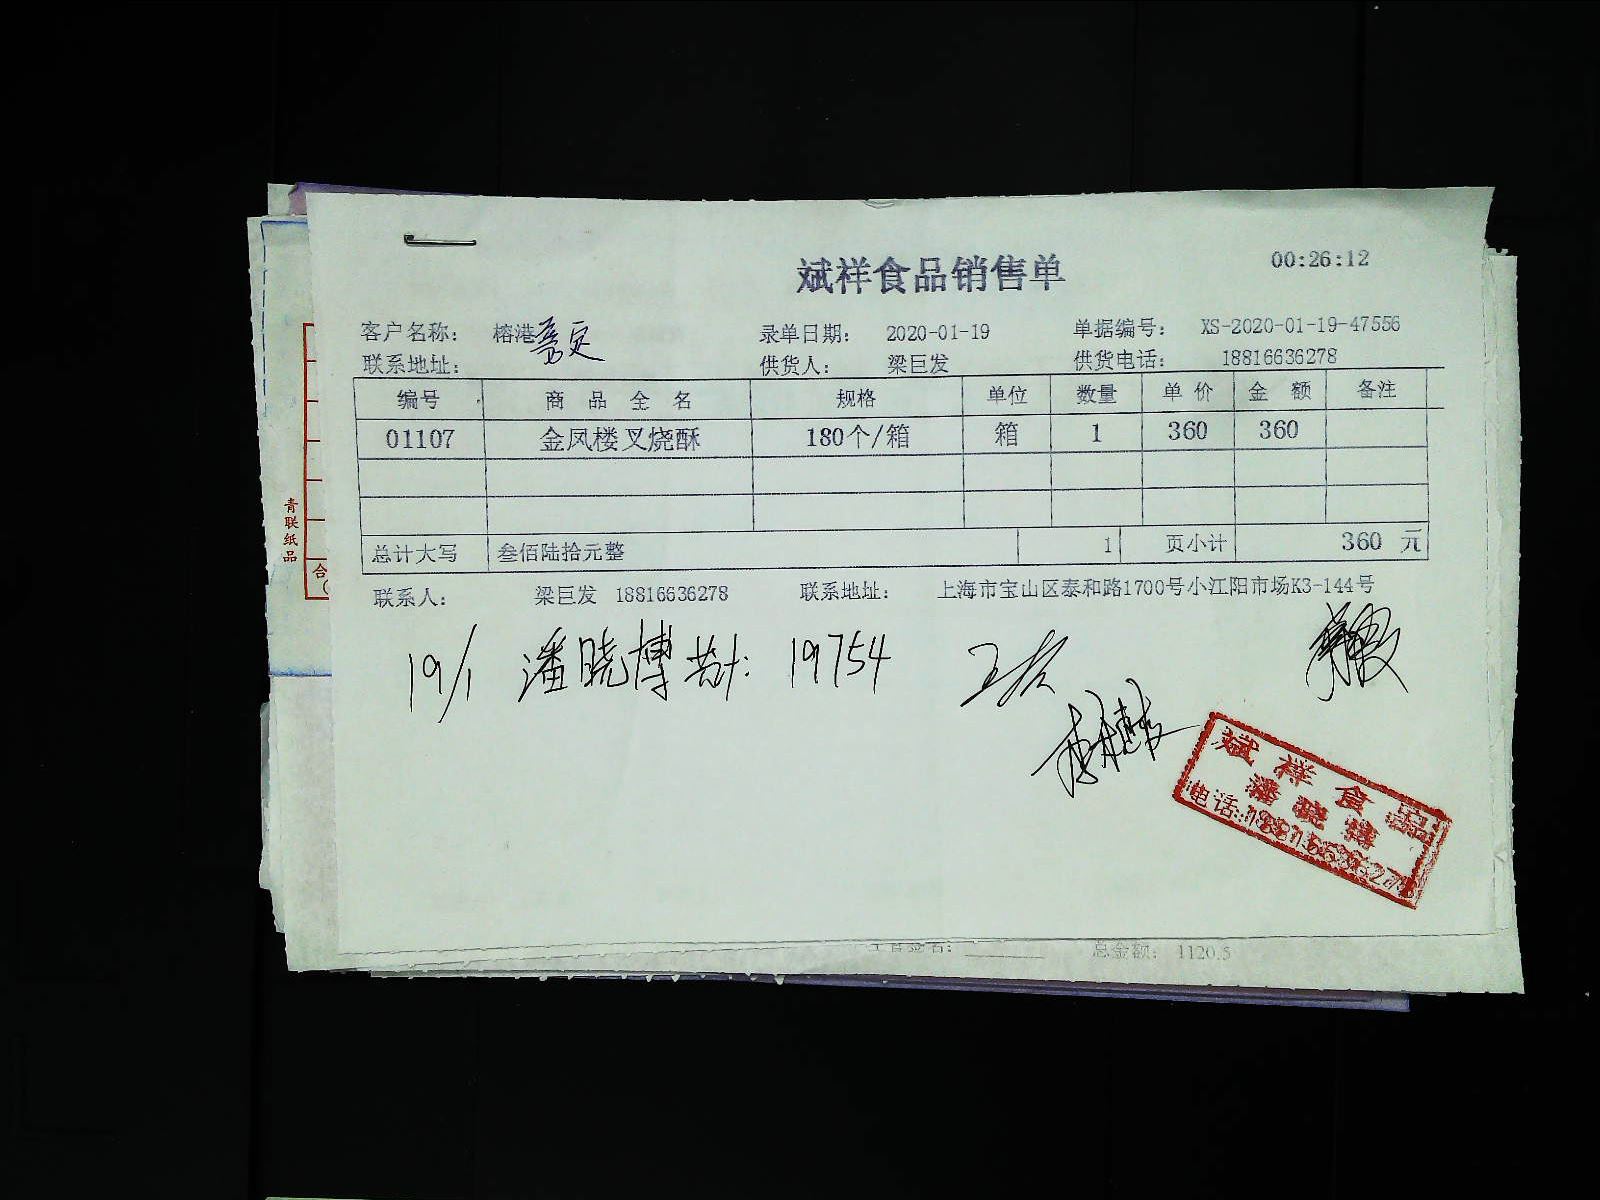 斌祥食品销售单 00:26:12
客户名称： 榕港 录单日期： 2020-01-19 单据编号： XS-2020-01-19-47556
联系地址： 供货人： 梁巨发 供货电话： 18816636278
编号 商品全名 规格 单位 数量 单价 金额 备注
01107 金凤楼叉烧酥 180个/箱 箱 1 360 360
总计大写 叁佰陆拾元整 1 页小计 360 元
联系人： 梁巨发 18816636278 联系地址： 上海市宝山区泰和路1700号小江阳市场K3-144号
19/1 潘晓博 19754
斌祥食品
潘晓博
电话：18816636278
总金额： 1120.5
青联纸品
合